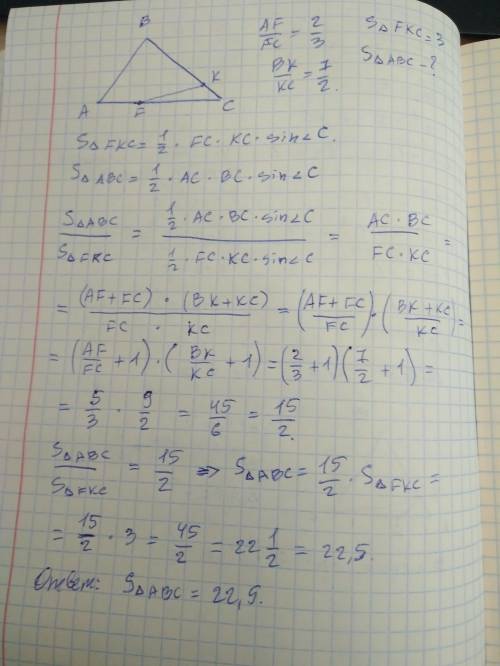 B
K
A F C
AF/FC = 2/3 S△FKC=3
BK/KC = 7/2. S△ABC - ?
S△FKC = 1/2 · FC · KC · sin∠C.
S△ABC = 1/2 · AC · BC · sin∠C
S△ABC/S△FKC = (1/2 · AC · BC · sin∠C)/(1/2 · FC · KC · sin∠C) = (AC · BC)/(FC · KC) =
= ((AF+FC) · (BK+KC))/(FC · KC) = ((AF+FC)/FC) · ((BK+KC)/KC) =
= (AF/FC + 1) · (BK/KC + 1) = (2/3 + 1)(7/2 + 1) =
= 5/3 · 9/2 = 45/6 = 15/2.
S△ABC/S△FKC = 15/2 => S△ABC = 15/2 · S△FKC =
= 15/2 · 3 = 45/2 = 22 1/2 = 22,5.
Ответ: S△ABC = 22,5.